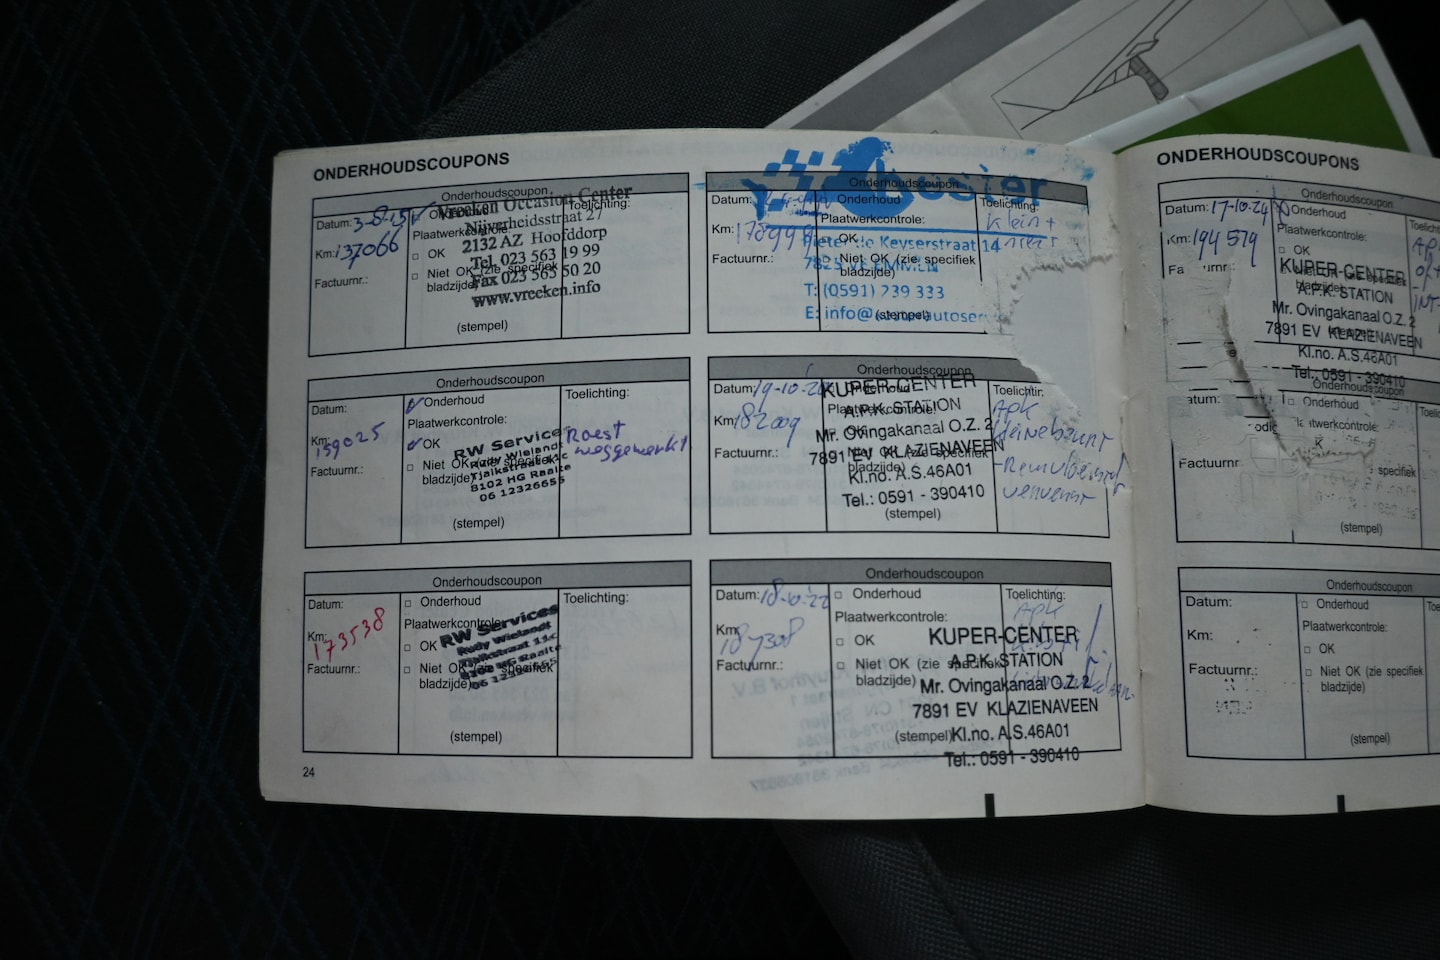 ONDERHOUDSCOUPONS
Onderhoudscoupon
Datum: 3-8-15
Onderhoud
Plaatwerkcontrole:
Toelichting:
Km: 137066
OK
Niet OK (zie specifiek
bladzijde)
Factuurnr.:
(stempel)
Vreeken Occasion Center
Nijverheidsstraat 27
2132 AZ Hoofddorp
Tel. 023 563 19 99
Fax 023 565 50 20
www.vreeken.info
Onderhoudscoupon
Datum:
Onderhoud
Toelichting:
Plaatwerkcontrole:
Km: 159025
OK
Niet OK (zie specifiek
bladzijde)
Factuurnr.:
(stempel)
RW Services
Rudy Wielandt
Tjalkstraat 11c
8102 HG Raalte
06 12326655
Roest
weggewerkt
Onderhoudscoupon
Datum:
Onderhoud
Toelichting:
Plaatwerkcontrole:
Km: 173538
OK
Niet OK (zie specifiek
bladzijde)
Factuurnr.:
(stempel)
RW Services
Rudy Wielandt
Tjalkstraat 11c
8102 HG Raalte
06 12326655
24
Onderhoudscoupon
Datum:
Onderhoud
Toelichting:
Plaatwerkcontrole:
Klein +
Km: 178999
OK
Niet OK (zie specifiek
Factuurnr.:
(stempel)
Pieter de Keyserstraat 14
EMMEN
T: (0591) 239 333
E: info@
Onderhoudscoupon
Datum: 19-10-
Onderhoud
Plaatwerkcontrole:
Km: 182009
OK
Niet OK (zie specifiek
bladzijde)
Factuurnr.:
(stempel)
KUPER-CENTER
A.P.K. STATION
Mr. Ovingakanaal O.Z. 2
7891 EV KLAZIENAVEEN
Kl.no. A.S.46A01
Tel.: 0591 - 390410
Apk
kleinebeurt
-Remvloeistof
ververst
Onderhoudscoupon
Datum: 18-10-22
Onderhoud
Toelichting:
Plaatwerkcontrole:
Km: 187308
OK
Niet OK (zie specifiek
bladzijde)
Factuurnr.:
(stempel)
Apk
KUPER-CENTER
A.P.K. STATION
Mr. Ovingakanaal O.Z. 2
7891 EV KLAZIENAVEEN
Kl.no. A.S.46A01
Tel.: 0591 - 390410
ONDERHOUDSCOUPONS
Onderhoudscoupon
Datum: 17-10-24
Onderhoud
Plaatwerkcontrole:
Km: 194579
OK
KUPER-CENTER
A.P.K. STATION
Mr. Ovingakanaal O.Z. 2
7891 EV KLAZIENAVEEN
Kl.no. A.S.46A01
Tel.: 0591 - 390410
Onderhoudscoupon
Onderhoud
Factuurnr
specifiek
(stempel)
Onderhoudscoupon
Datum:
Onderhoud
Plaatwerkcontrole:
Km:
OK
Niet OK (zie specifiek
bladzijde)
Factuurnr.:
(stempel)